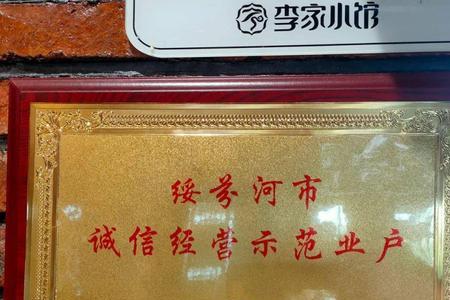 李家小馆
绥芬河市
诚信经营示范业户